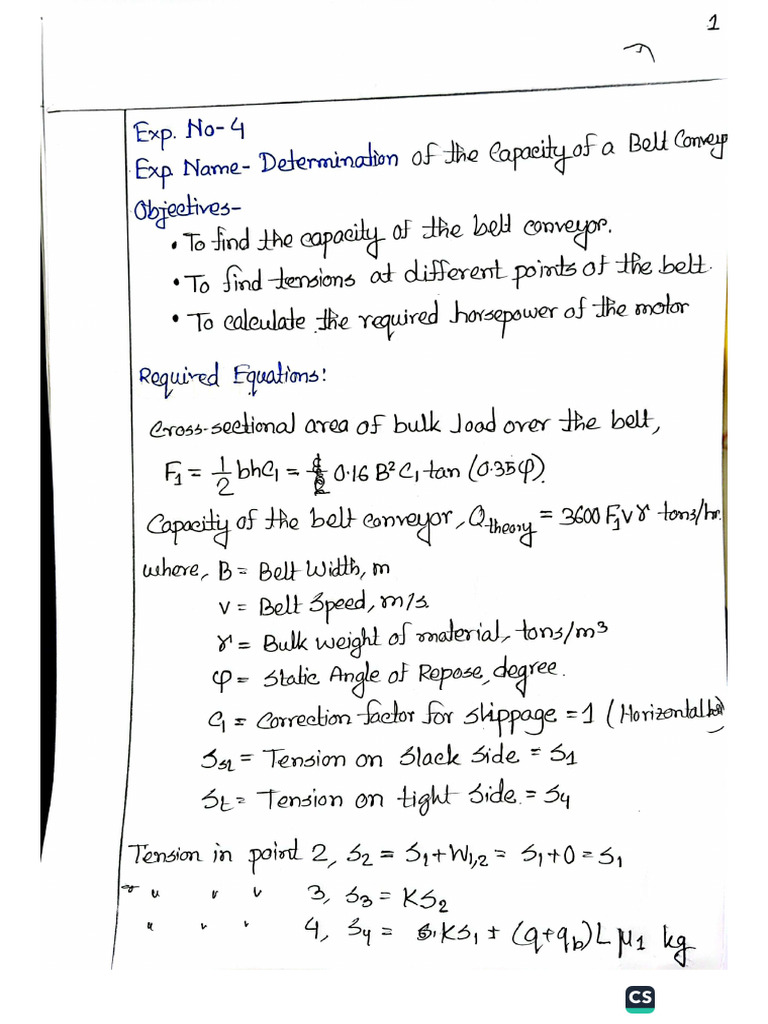 1
Exp. No-4
Exp. Name- Determination of the Capacity of a Belt Convey
Objectives-
• To find the capacity of the belt conveyor.
• To find tensions at different points of the belt.
• To calculate the required horsepower of the motor
Required Equations:
Cross-sectional area of bulk load over the belt,
F₁ = 1/2 bhC₁ = 0.16 B² C₁ tan (0.35φ).
Capacity of the belt conveyor, Q_theory = 3600 F₁vγ tons/hr.
where, B = Belt Width, m
v = Belt Speed, m/s.
γ = Bulk weight of material, tons/m³
φ = Static Angle of Repose, degree.
C₁ = Correction factor for slippage = 1 (Horizontal
S_sl = Tension on Slack Side = S₁
S_t = Tension on tight Side = S₄
Tension in point 2, S₂ = S₁ + W₁,₂ = S₁ + 0 = S₁
" " " 3, S₃ = KS₂
" " " 4, S₄ = KS₁ + (q+q_b) L μ₁ kg
CS